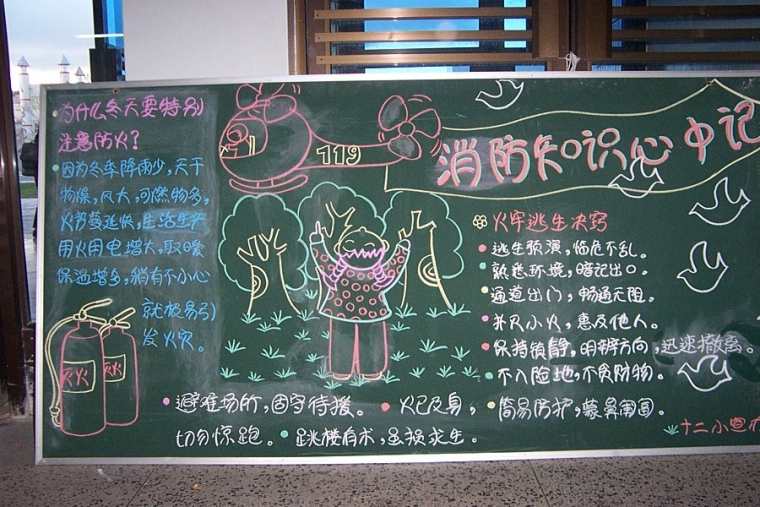 为什么冬天要特别
注意防火？
因为冬季降雨少，天干
物燥，风大，可燃物多，
火势蔓延快，生活生产
用火用电增大，取暖
保温增多，稍有不小心
就极易引
发火灾。
119
消防知识心中记
火牢逃生决窍
逃生预演，临危不乱。
熟悉环境，暗记出口。
通道出口，畅通无阻。
扑灭小火，惠及他人。
保持镇静，明辨方向，迅速撤离。
不入险地，不贪财物。
简易防护，蒙鼻匍匐。
灭火
灭火
避难场所，固守待援。
火已及身，
切勿惊跑。
跳楼有术，虽损求生。
十二小宣